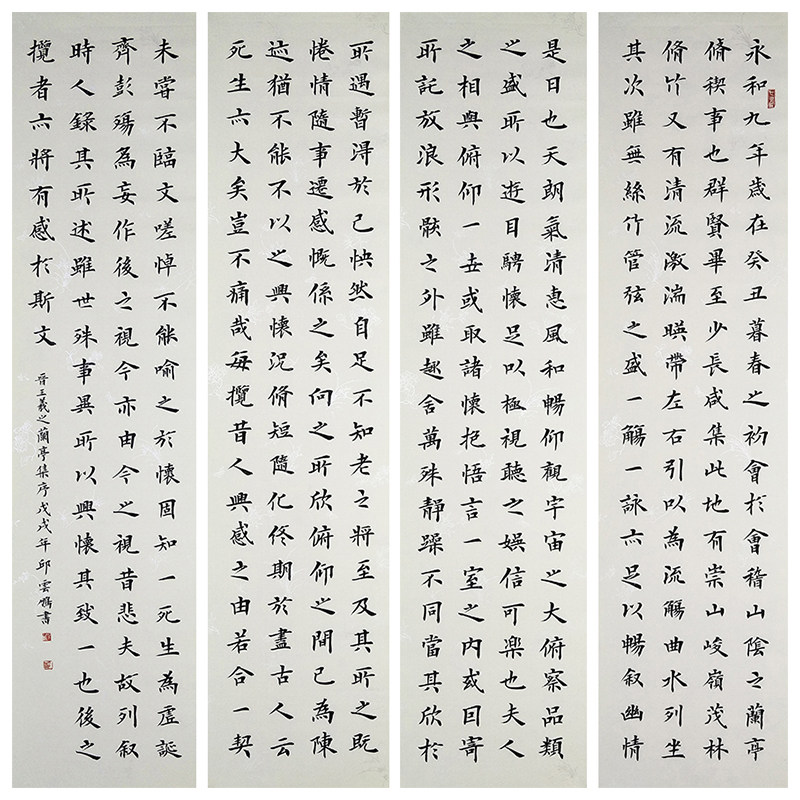 永和九年歲在癸丑暮春之初會於會稽山陰之蘭亭
脩稧事也群賢畢至少長咸集此地有崇山峻嶺茂林
脩竹又有清流激湍暎帶左右引以為流觴曲水列坐
其次雖無絲竹管弦之盛一觴一詠亦足以暢叙幽情
是日也天朗氣清惠風和暢仰觀宇宙之大俯察品類
之盛所以遊目騁懷足以極視聽之娛信可樂也夫人
之相與俯仰一世或取諸懷抱悟言一室之內或因寄
所託放浪形骸之外雖趣舍萬殊靜躁不同當其欣於
所遇暫得於己怏然自足不知老之將至及其所之既
惓情隨事遷感慨係之矣向之所欣俯仰之間已為陳
迹猶不能不以之興懷況脩短隨化終期於盡古人云
死生亦大矣豈不痛哉每攬昔人興感之由若合一契
未嘗不臨文嗟悼不能喻之於懷固知一死生為虛誕
齊彭殤為妄作後之視今亦由今之視昔悲夫故列叙
時人錄其所述雖世殊事異所以興懷其致一也後之
攬者亦將有感於斯文 晉王羲之蘭亭集序戊戌年邱雲鶴書